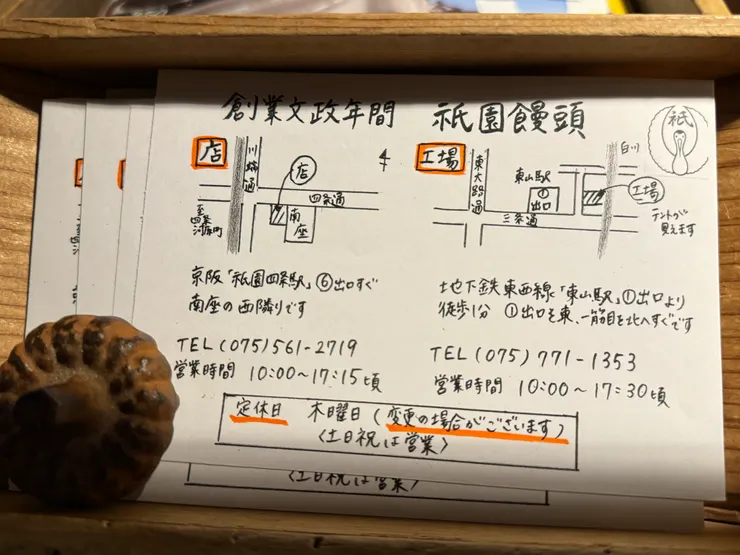 創業文政年間 祇園饅頭
祇
店
川端通
店
四条通
南座
至四条河原町
工場
東大路通
東山駅
①出口
三条通
白川
工場
テントが
見えます
京阪「祇園四条駅」⑥出口すぐ
南座の西隣りです
TEL (075) 561-2719
営業時間 10:00~17:15頃
地下鉄東西線「東山駅」①出口より
徒歩1分 ①出口を東、一筋目を北へすぐです
TEL (075) 771-1353
営業時間 10:00~17:30頃
定休日 木曜日(変更の場合がございます)
〈土日祝は営業〉
〈土日祝は営業〉